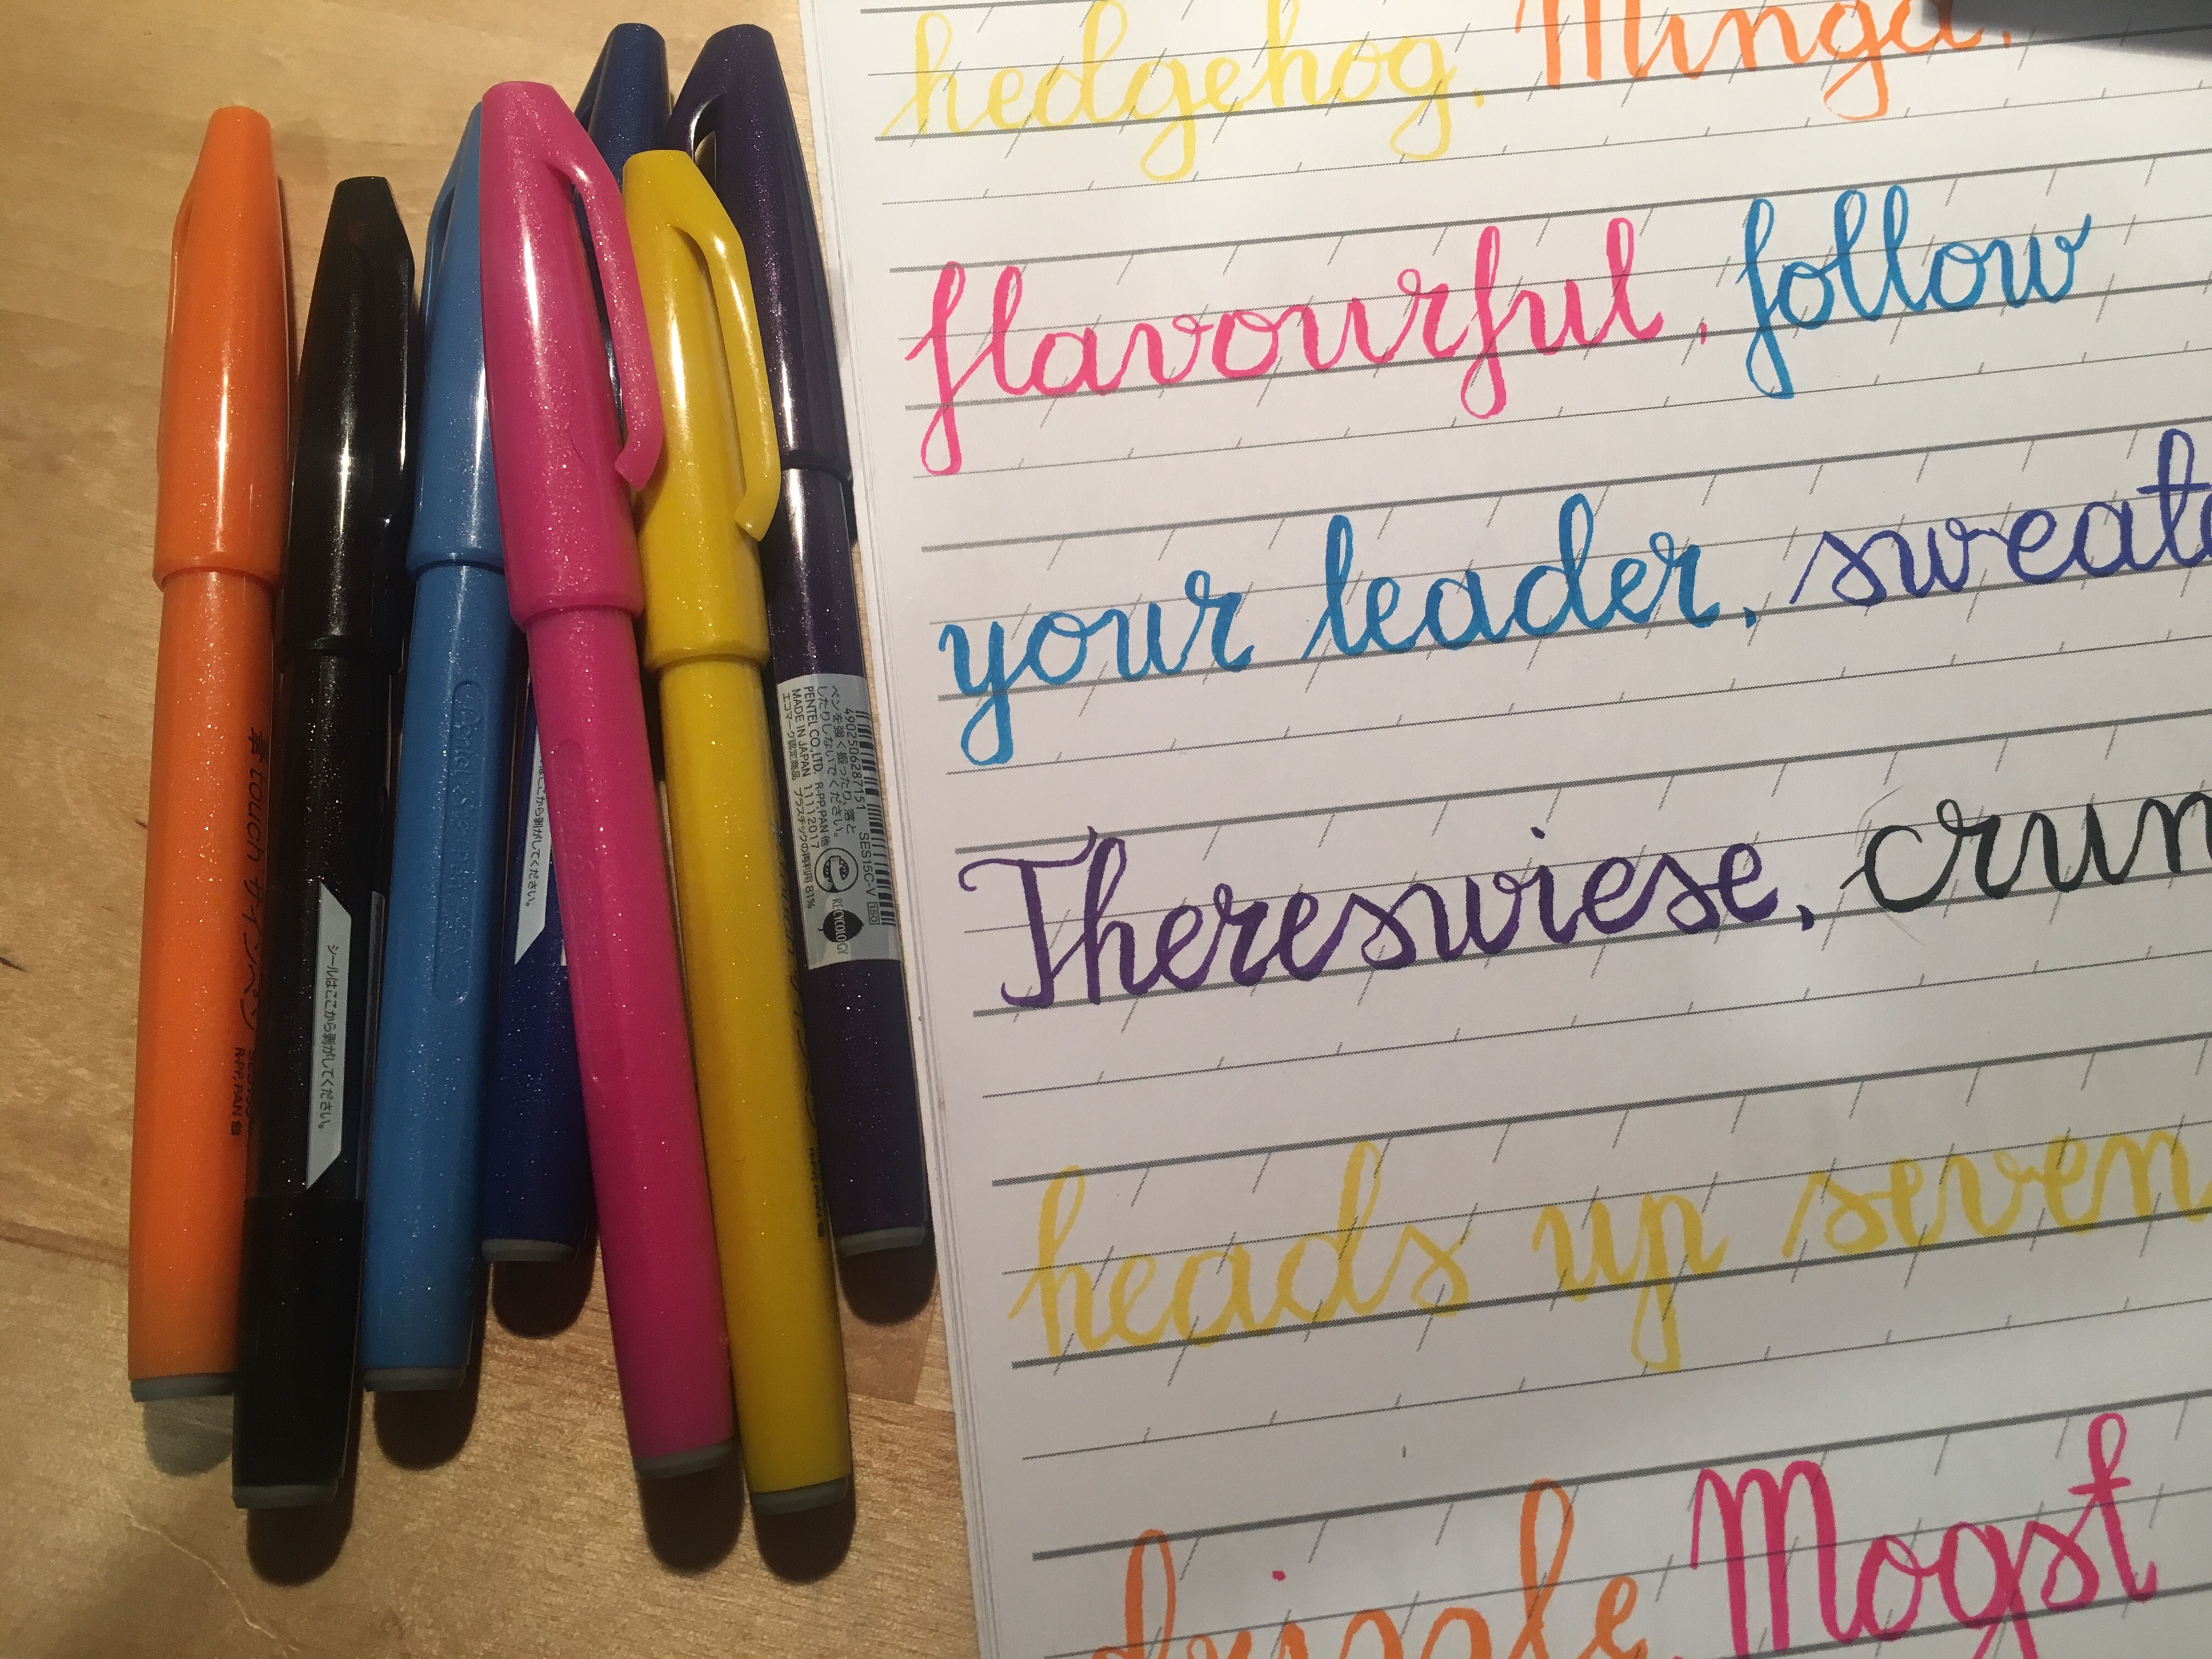 hedgehog. Minga.
flavourful, follow
your leader, sweate
Thereswiese, crun
heads up seven
drizzle Mogst
筆touch サインペン
Pentel
シールはここから剥がしてください。
ここから剥がしてください。
4902506287151 SES15C-V
ペンを強く振ったり、落と
したりしないでください。
PENTEL CO.,LTD. R-PP,PAN 他
MADE IN JAPAN 11112017
エコマーク認定商品 プラスチックの再利用 81%
RECYCOLOGY
R-PP,PAN 他